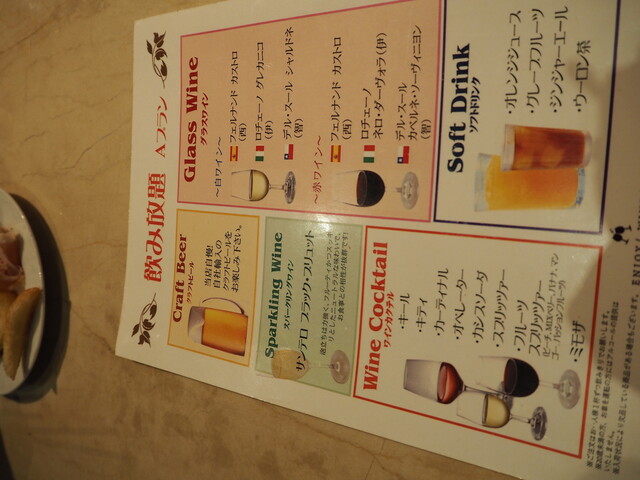 飲み放題 Aプラン
Glass Wine
グラスワイン
～白ワイン～
フェルナンド カストロ
(西)
ロチェーノ グレカニコ
(伊)
デル・スール シャルドネ
(智)
～赤ワイン～
フェルナンド カストロ
(西)
ロチェーノ
ネロ・ダーヴォラ(伊)
デル・スール
カベルネ・ソーヴィニヨン
(智)
Soft Drink
ソフトドリンク
・オレンジジュース
・グレープフルーツ
・ジンジャーエール
・ウーロン茶
Craft Beer
クラフトビール
当店自慢!
自社輸入の
クラフトビールを
お楽しみ下さい。
Sparkling Wine
スパークリングワイン
サンテロ ブラック・ブリュット
Wine Cocktail
ワインカクテル
・キール
・キティ
・カーディナル
・オペレーター
・カシスソーダ
・スプリッツァー
・フルーツ
スプリッツァー
・ミモザ